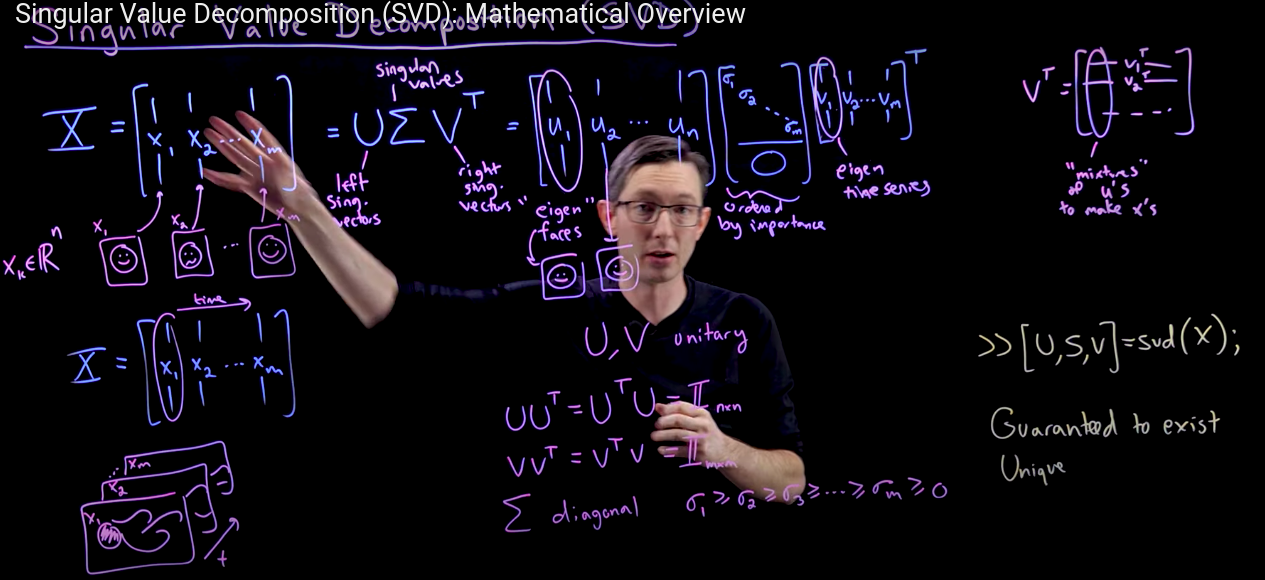 Singular Value Decomposition (SVD): Mathematical Overview
Singular Value Decomposition (SVD)
X = [x₁ x₂ ... xₘ] = U Σ Vᵀ = [u₁ u₂ ... uₙ] [σ₁ σ₂ ⋱ σₘ 0] [v₁ v₂ ... vₘ]ᵀ
singular values
left sing. vectors
right sing. vectors
"eigen" faces
ordered by importance
eigen time series
Vᵀ = [v₁ᵀ v₂ᵀ ...]
"mixtures"
of u's
to make x's
x₁ x₂ ... xₘ
xₖ ∈ ℝⁿ
time
X = [x₁ x₂ ... xₘ]
U, V unitary
UUᵀ = UᵀU = 𝕀 nxn
VVᵀ = VᵀV = 𝕀 mxm
Σ diagonal σ₁ ≥ σ₂ ≥ σ₃ ≥ ... ≥ σₘ ≥ 0
>> [U,S,V] = svd(X);
Guaranteed to exist
Unique
... xₘ
x₂
x₁
t